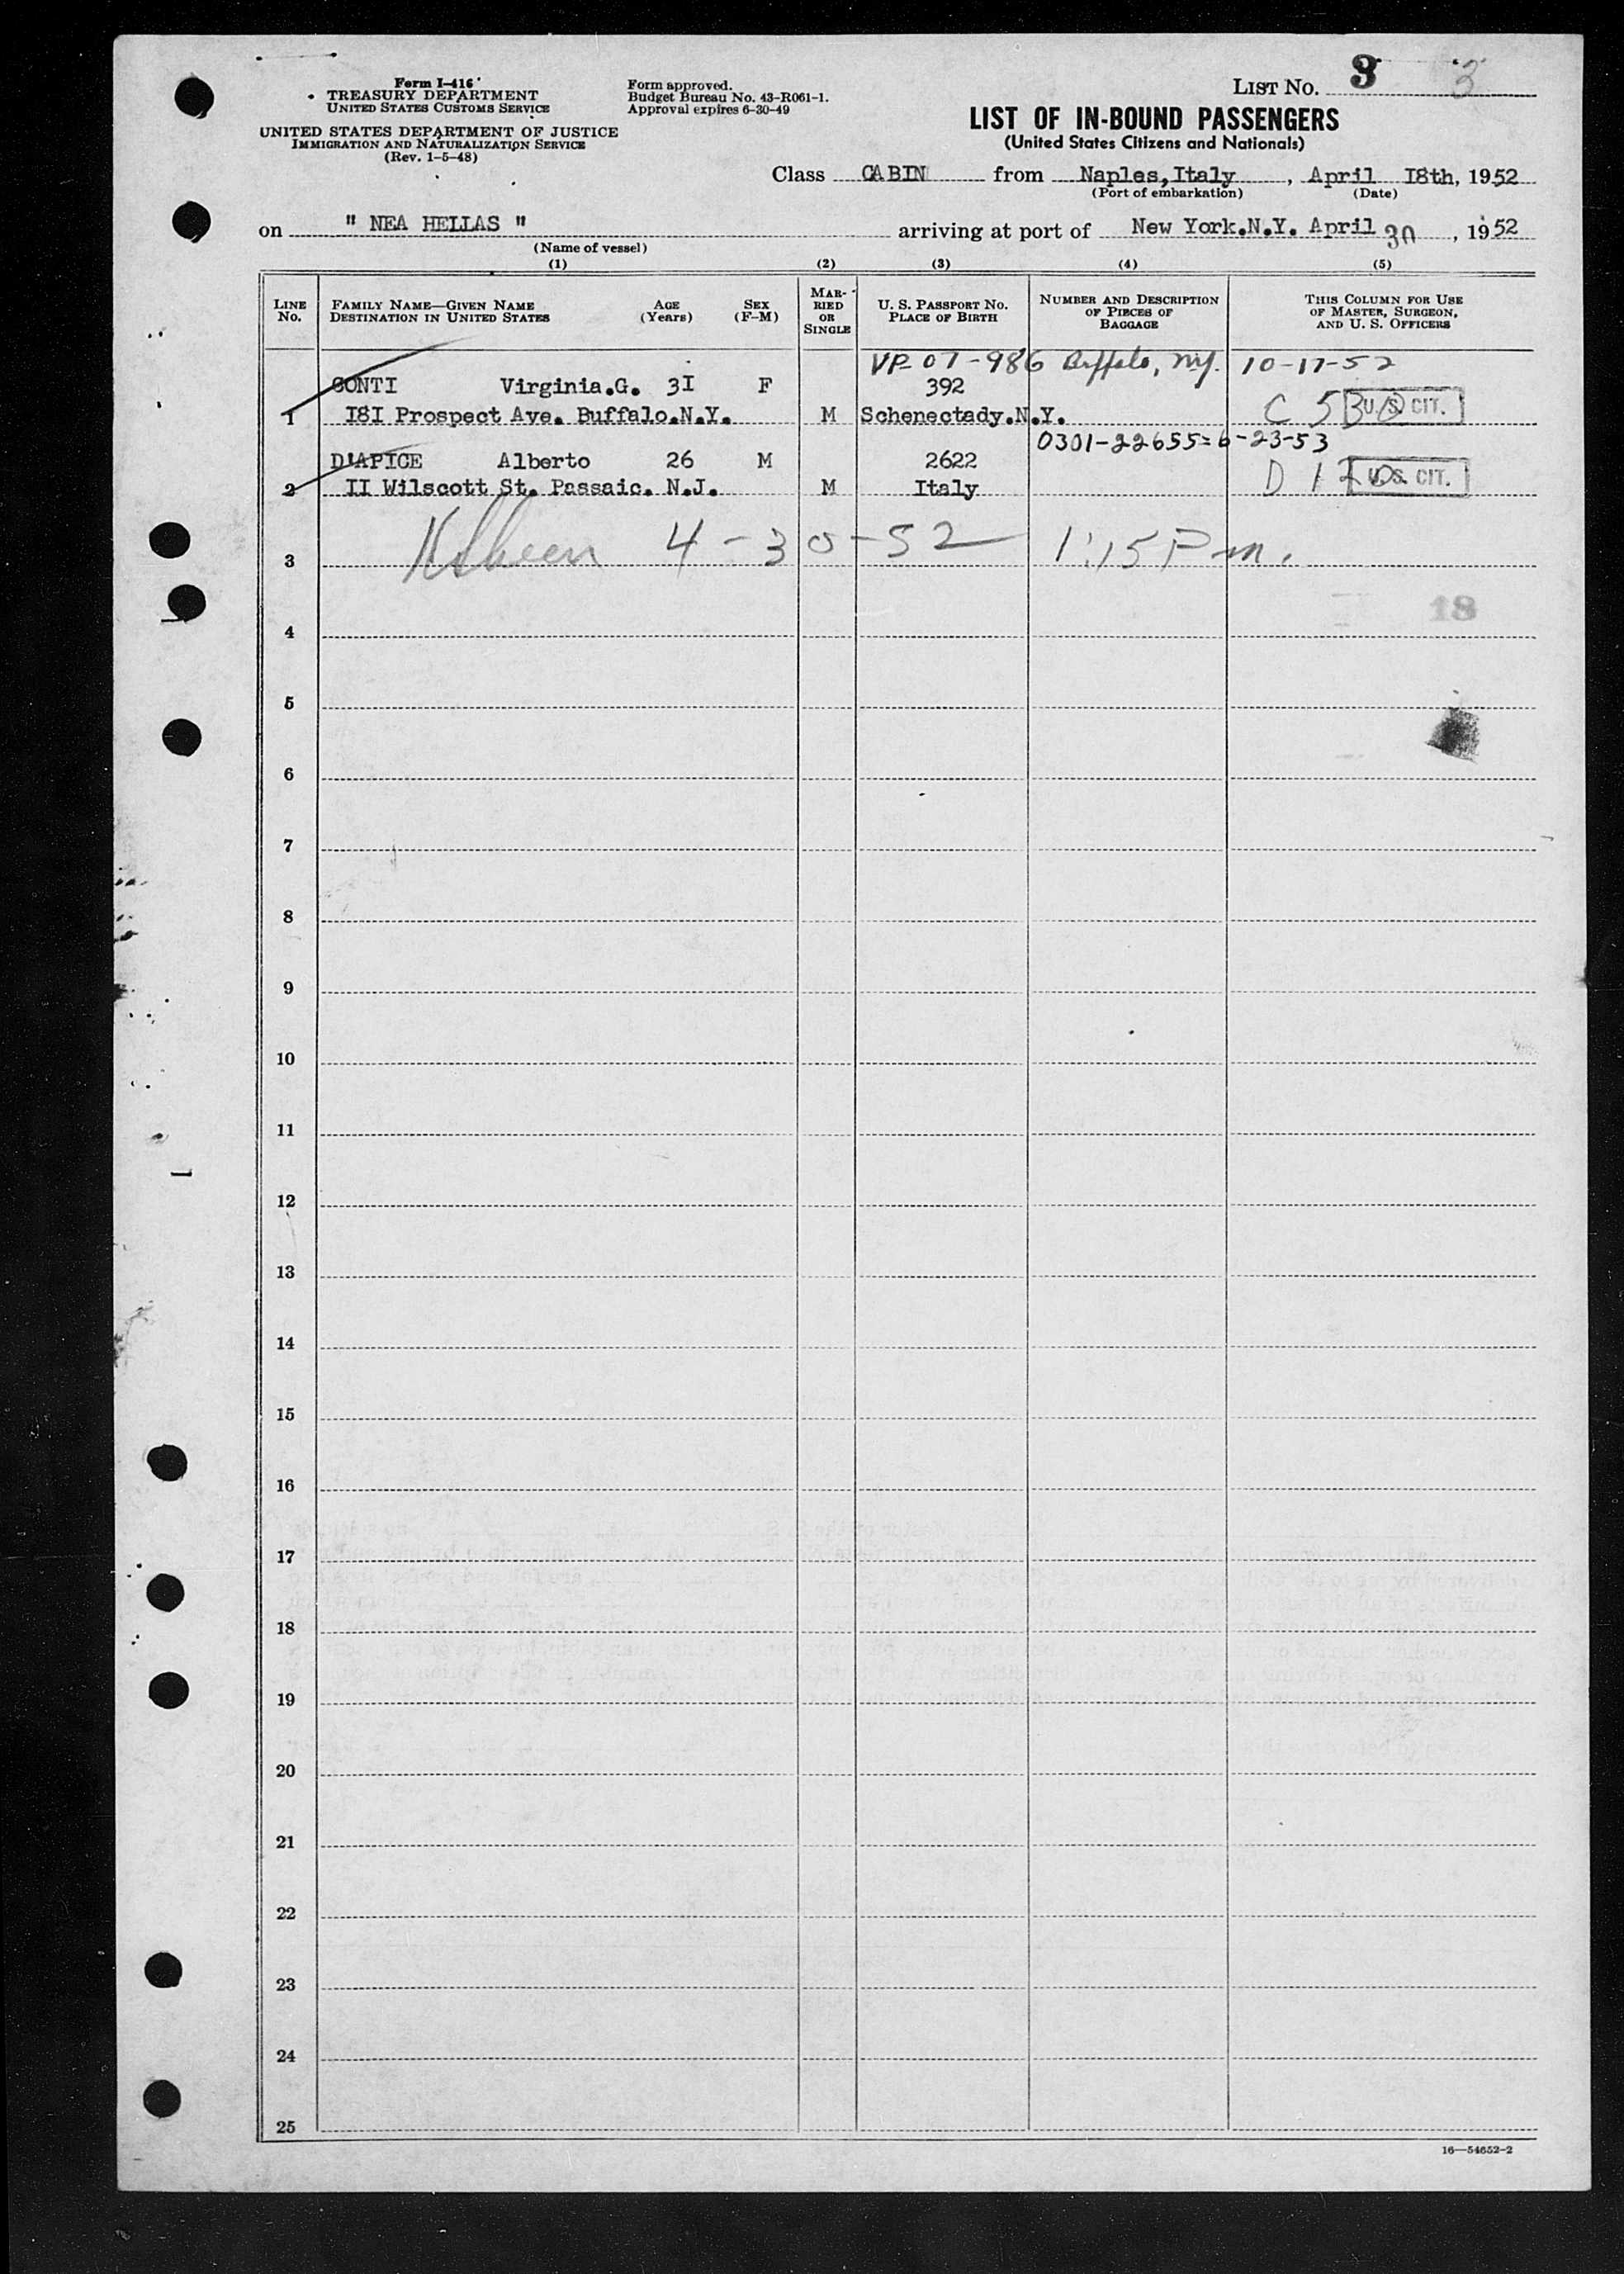 Form I-416
TREASURY DEPARTMENT
UNITED STATES CUSTOMS SERVICE
UNITED STATES DEPARTMENT OF JUSTICE
IMMIGRATION AND NATURALIZATION SERVICE
(Rev. 1-5-48)
Form approved.
Budget Bureau No. 43-R061-1.
Approval expires 6-30-49
LIST NO. 3 3
LIST OF IN-BOUND PASSENGERS
(United States Citizens and Nationals)
Class CABIN from Naples,Italy , April I8th, 1952
(Port of embarkation) (Date)
on " NEA HELLAS " arriving at port of New York.N.Y. April 30 , 1952
(Name of vessel)
(1) (2) (3) (4) (5)
LINE NO. FAMILY NAME—GIVEN NAME DESTINATION IN UNITED STATES AGE (Years) SEX (F-M) MARRIED OR SINGLE U. S. PASSPORT NO. PLACE OF BIRTH NUMBER AND DESCRIPTION OF PIECES OF BAGGAGE THIS COLUMN FOR USE OF MASTER, SURGEON, AND U. S. OFFICERS
VP 07-986 Buffalo, NY. 10-17-52
CONTI Virginia.G. 3I F 392
1 I8I Prospect Ave. Buffalo.N.Y. M Schenectady.N.Y. C 53 U. S. CIT.
0301-22655=6-23-53
D'APICE Alberto 26 M 2622
2 II Wilscott St. Passaic. N.J. M Italy D 12 U. S. CIT.
3 4-30-52 1:15 Pm.
18
4
5
6
7
8
9
10
11
12
13
14
15
16
17
18
19
20
21
22
23
24
25
16—54652-2